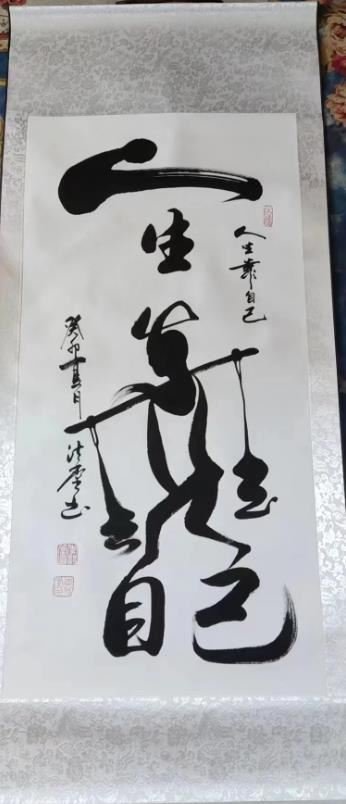 人生靠自己
人生靠自己
癸卯夏月